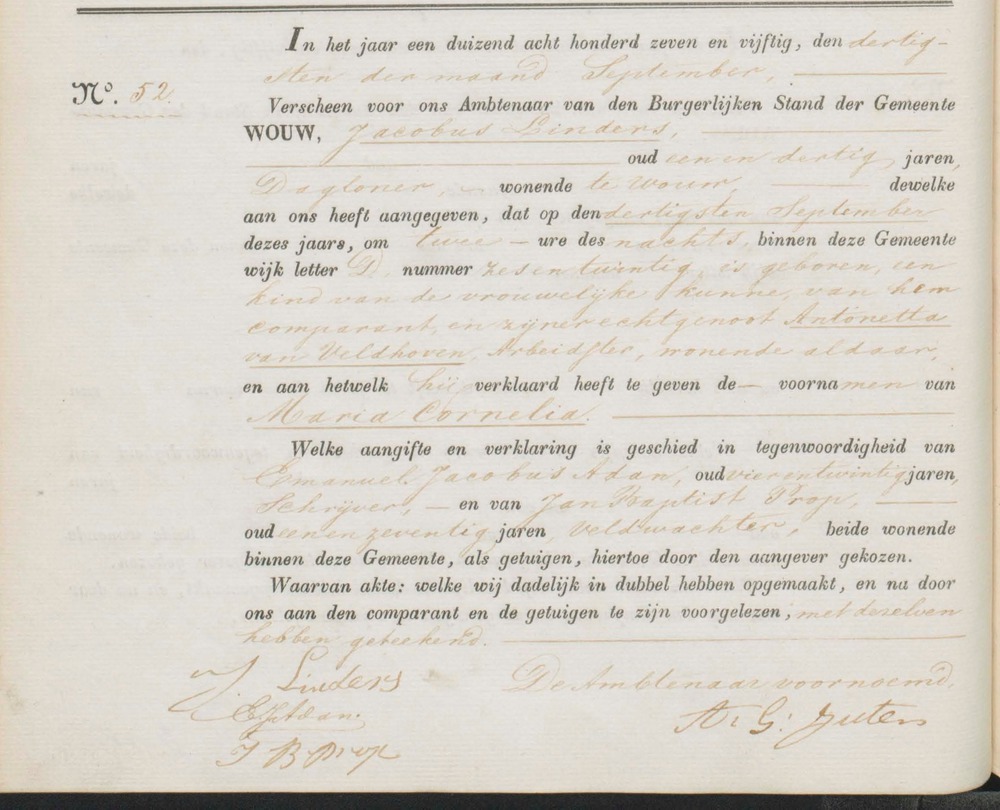 In het jaar een duizend acht honderd zeven en vijftig, den dertig-
sten der maand September,
No. 52.
Verscheen voor ons Ambtenaar van den Burgerlijken Stand der Gemeente
WOUW, Jacobus Linders,
oud een en dertig jaren,
Dagloner, wonende te Wouw, dewelke
aan ons heeft aangegeven, dat op den dertigsten September
dezes jaars, om twee ure des nachts, binnen deze Gemeente
wijk letter D. nummer zes en twintig, is geboren, een
kind van de vrouwelijke kunne, van hem
comparant, en zijner echtgenoot Antonetta
van Veldhoven, Arbeidster, wonende aldaar,
en aan hetwelk hij verklaard heeft te geven de voornamen van
Maria Cornelia.
Welke aangifte en verklaring is geschied in tegenwoordigheid van
Emanuel Jacobus Adan, oud vier en twintig jaren,
Schrijver, en van Jan Baptist Prop,
oud een en zeventig jaren, Veldwachter, beide wonende
binnen deze Gemeente, als getuigen, hiertoe door den aangever gekozen.
Waarvan akte: welke wij dadelijk in dubbel hebben opgemaakt, en na door
ons aan den comparant en de getuigen te zijn voorgelezen, met dezelven
hebben geteekend.
J. Linders De Ambtenaar voornoemd,
EJAdan. A. G. Juten
J B Prop